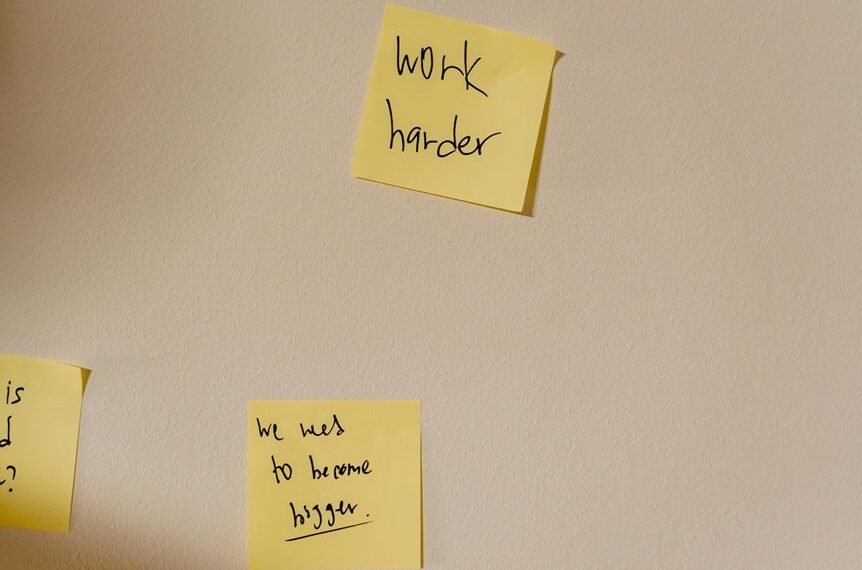 work
harder
is
d
?
we need
to become
bigger.